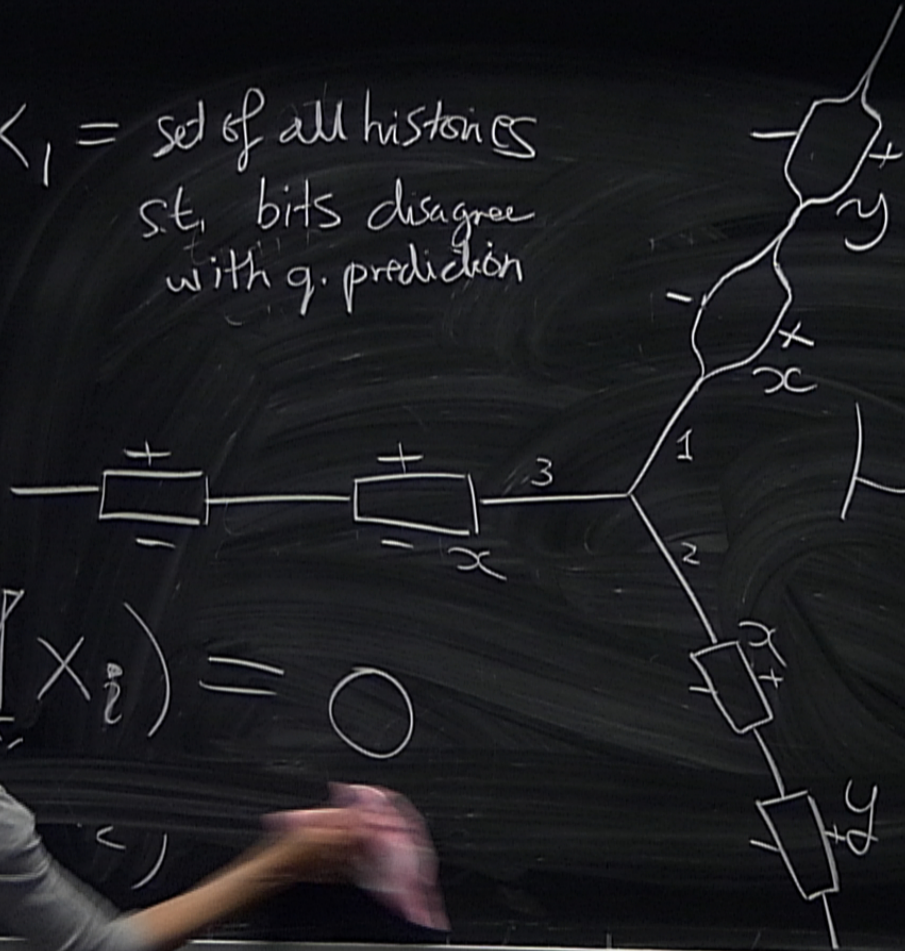 K₁ = set of all histories
s.t. bits disagree
with q. prediction
- +
y
- +
x
+ + 3 1
- - x
2
x
- +
Xᵢ) = 0
y
- +